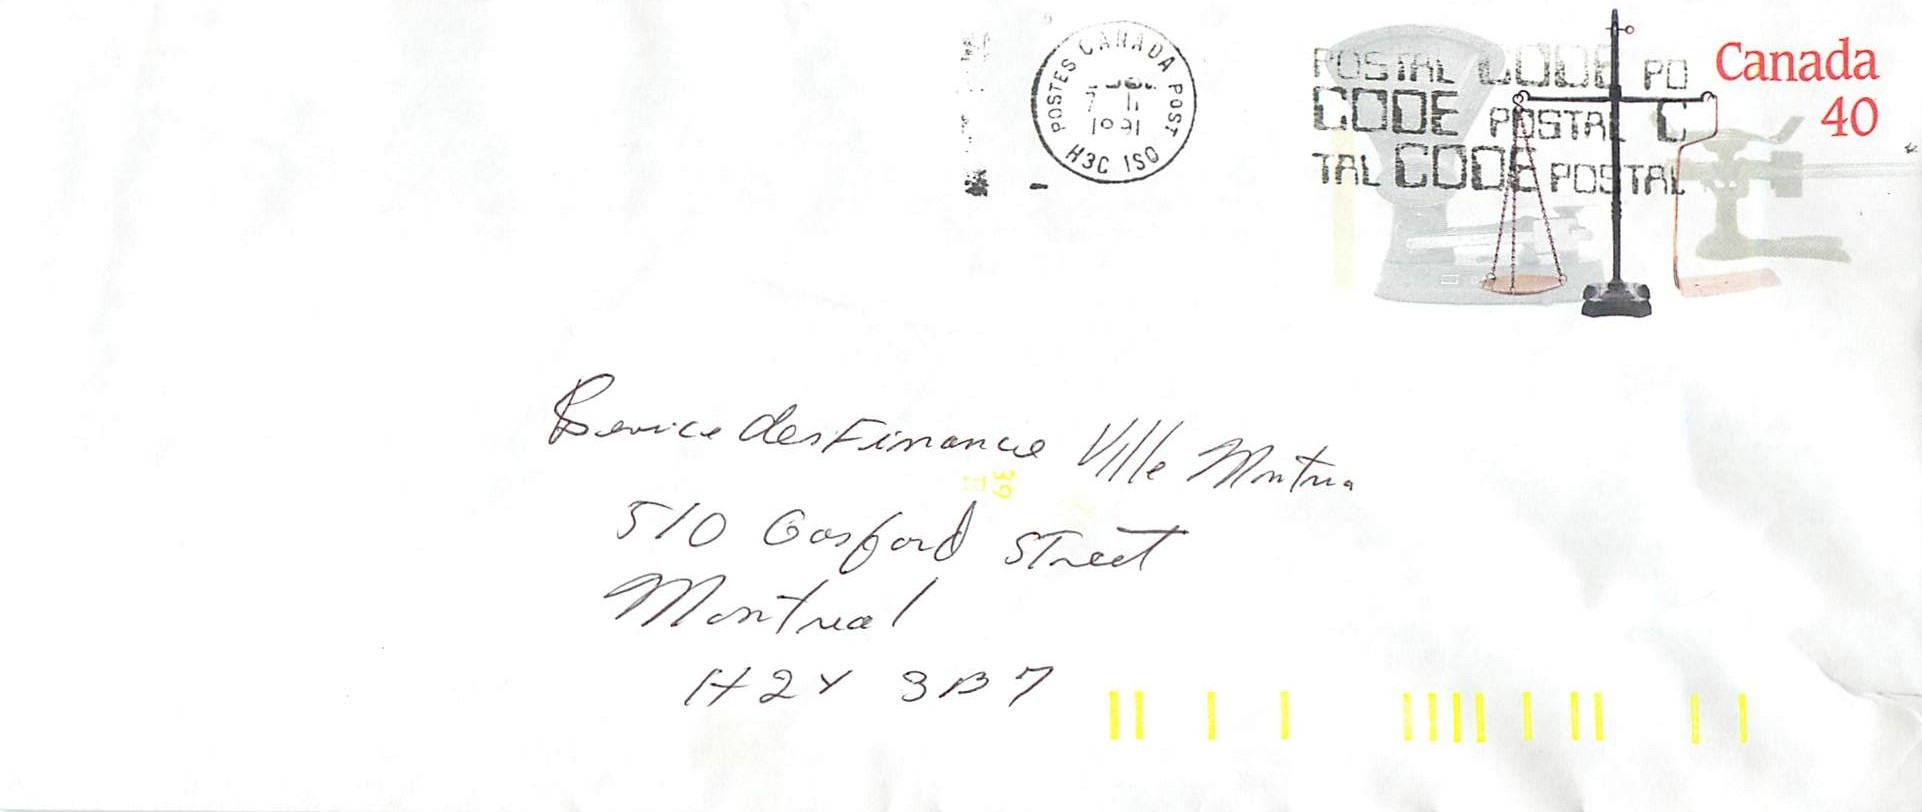 POSTES CANADA POST
1991
H3C 1S0
POSTAL CODE PO
CODE POSTAL C
TAL CODE POSTAL
Canada
40
Service des Finance Ville
39
510 Gosford Street
Montreal
H2Y 3B7